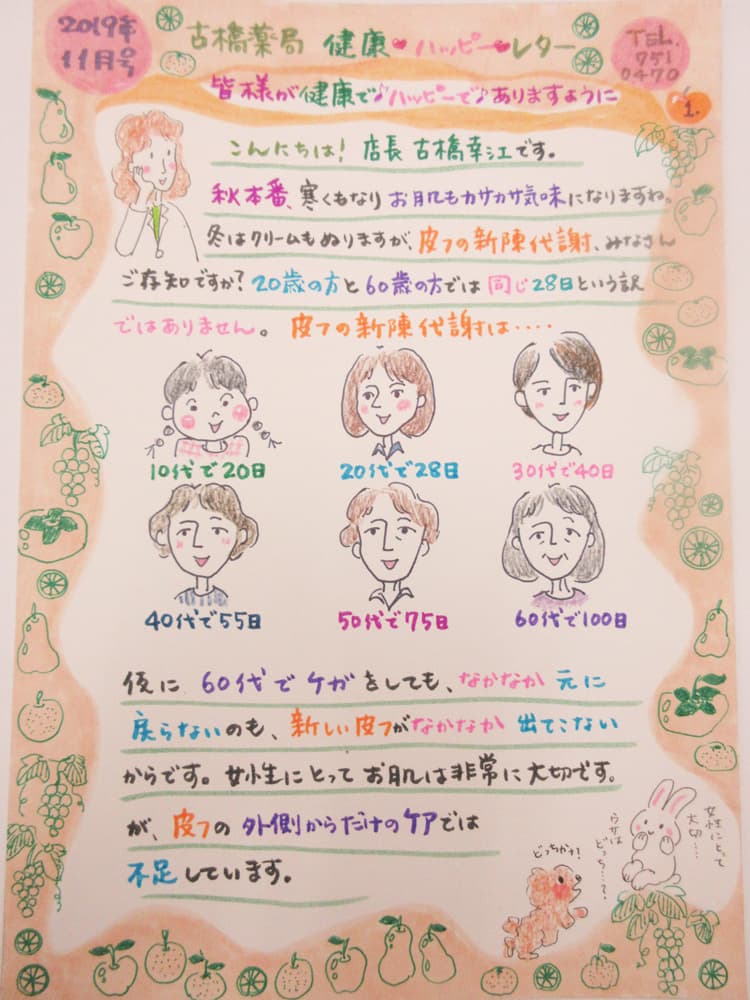 2019年
11月号
古橋薬局 健康❤ハッピー❤レター
TEL.
751
0470
皆様が健康で♪ハッピーで♪ありますように
1.
こんにちは! 店長 古橋幸江です。
秋本番、寒くもなり お肌もカサカサ気味になりますね。
冬はクリームもぬりますが、皮フの新陳代謝、みなさん
ご存知ですか? 20歳の方と60歳の方では 同じ28日という訳
ではありません。 皮フの新陳代謝は・・・・
10代で20日
20代で28日
30代で40日
40代で55日
50代で75日
60代で100日
仮に 60代で ケガをしても、なかなか 元に
戻らないのも、新しい皮フがなかなか 出てこない
からです。女性にとって お肌は非常に大切です。
が、皮フの 外側からだけのケアでは
不足しています。
女性にとって
大切…
ウサは
どっち…?
どっちかナ!